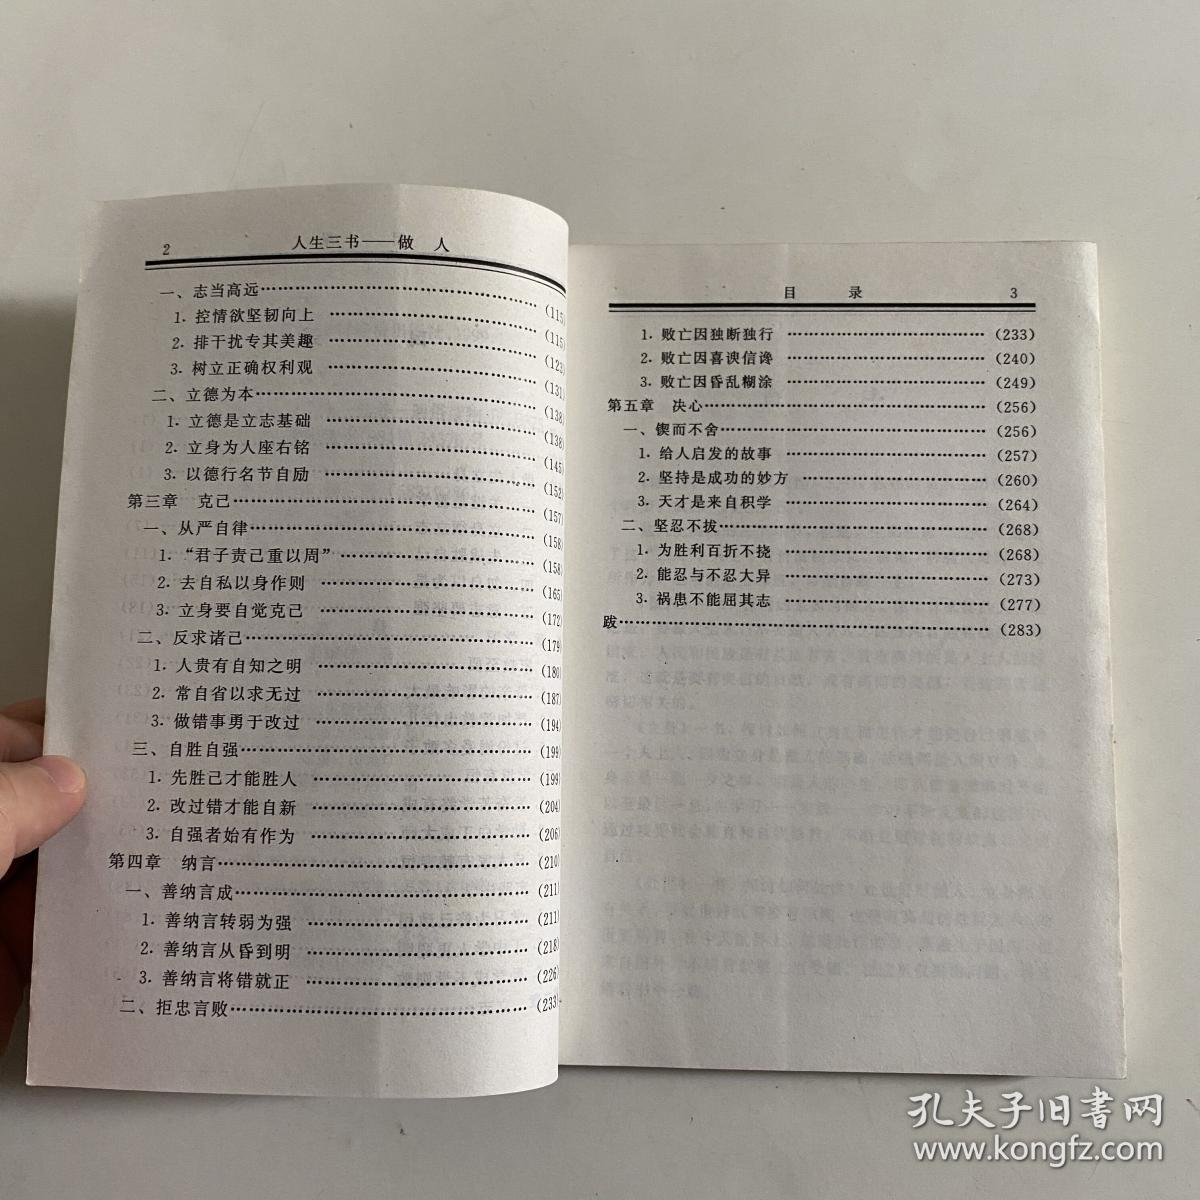 2 人生三书——做 人
一、志当高远……(115)
1. 控情欲坚韧向上……(115)
2. 排干扰专其美趣……(123)
3. 树立正确权利观……(131)
二、立德为本……(138)
1. 立德是立志基础……(138)
2. 立身为人座右铭……(145)
3. 以德行名节自励……(152)
第三章 克己……(157)
一、从严自律……(158)
1. “君子责己重以周”……(158)
2. 去自私以身作则……(165)
3. 立身要自觉克己……(172)
二、反求诸己……(179)
1. 人贵有自知之明……(180)
2. 常自省以求无过……(187)
3. 做错事勇于改过……(194)
三、自胜自强……(199)
1. 先胜己才能胜人……(199)
2. 改过错才能自新……(204)
3. 自强者始有作为……(206)
第四章 纳言……(210)
一、善纳言成……(211)
1. 善纳言转弱为强……(211)
2. 善纳言从昏到明……(218)
3. 善纳言将错就正……(226)
二、拒忠言败……(233)
目 录 3
1. 败亡因独断独行……(233)
2. 败亡因喜谀信谗……(240)
3. 败亡因昏乱糊涂……(249)
第五章 决心……(256)
一、锲而不舍……(256)
1. 给人启发的故事……(257)
2. 坚持是成功的妙方……(260)
3. 天才是来自积学……(264)
二、坚忍不拔……(268)
1. 为胜利百折不挠……(268)
2. 能忍与不忍大异……(273)
3. 祸患不能屈其志……(277)
跋……(283)
孔夫子旧书网
www.kongfz.com